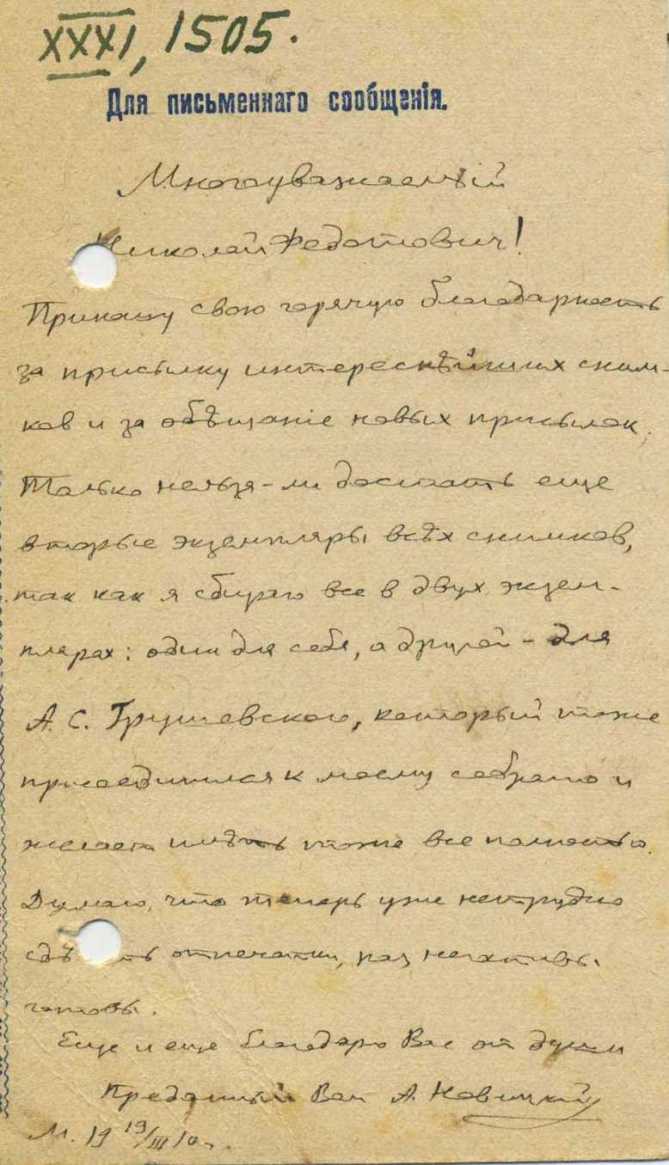 XXXI, 1505.
Для письменнаго сообщенія.
Многоуважаемый
Николай Федотович!
Приношу свою горячую благодарность
за присылку интереснѣйших сним-
ков и за обѣщаніе новых присылок.
Только нельзя-ли дослать еще
вторые экземпляры всѣх снимков,
так как я сбираю все в двух экзем-
плярах: один для себя, а другой – для
А. С. Грушевскаго, который тоже
присоединился к моему собранію и
желает имѣть тоже все полностью.
Думаю, что теперь уже нетрудно
сдѣ ть отпечатки, раз негативы
готовы.
Еще и еще благодарю Вас от души
Преданный Вам А. Новицкий
М. 19 19/III 10